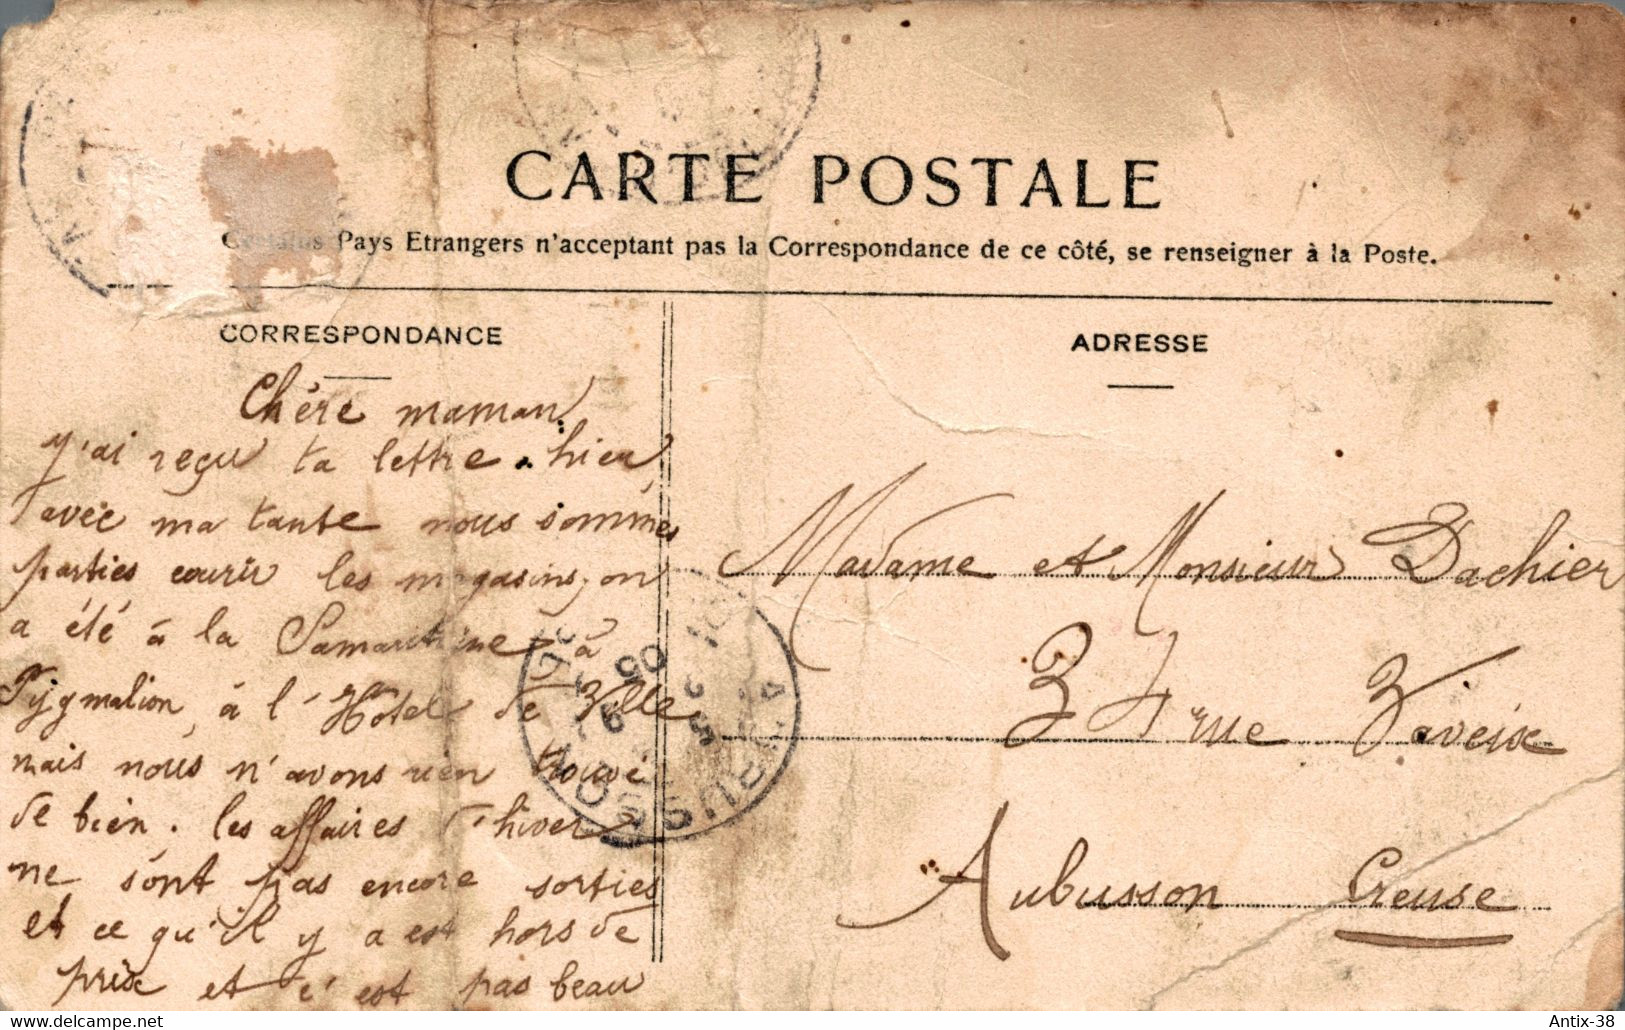 CARTE POSTALE
Certains Pays Etrangers n'acceptant pas la Correspondance de ce côté, se renseigner à la Poste.
CORRESPONDANCE
Chère maman
j'ai reçu ta lettre. hier
avec ma tante nous sommes
parties courir les magasins, on
a été à la Samaritaine, à
Pygmalion, à l'Hôtel de Ville
mais nous n'avons rien trouvé
de bien. les affaires d'hiver
ne sont pas encore sorties
et ce qu'il y a est hors de
prix et c'est pas beau
ADRESSE
Madame et Monsieur Dachier
37 rue Vaveix
Aubusson Creuse
AUBUSSON
05
www.delcampe.net
Antix-38